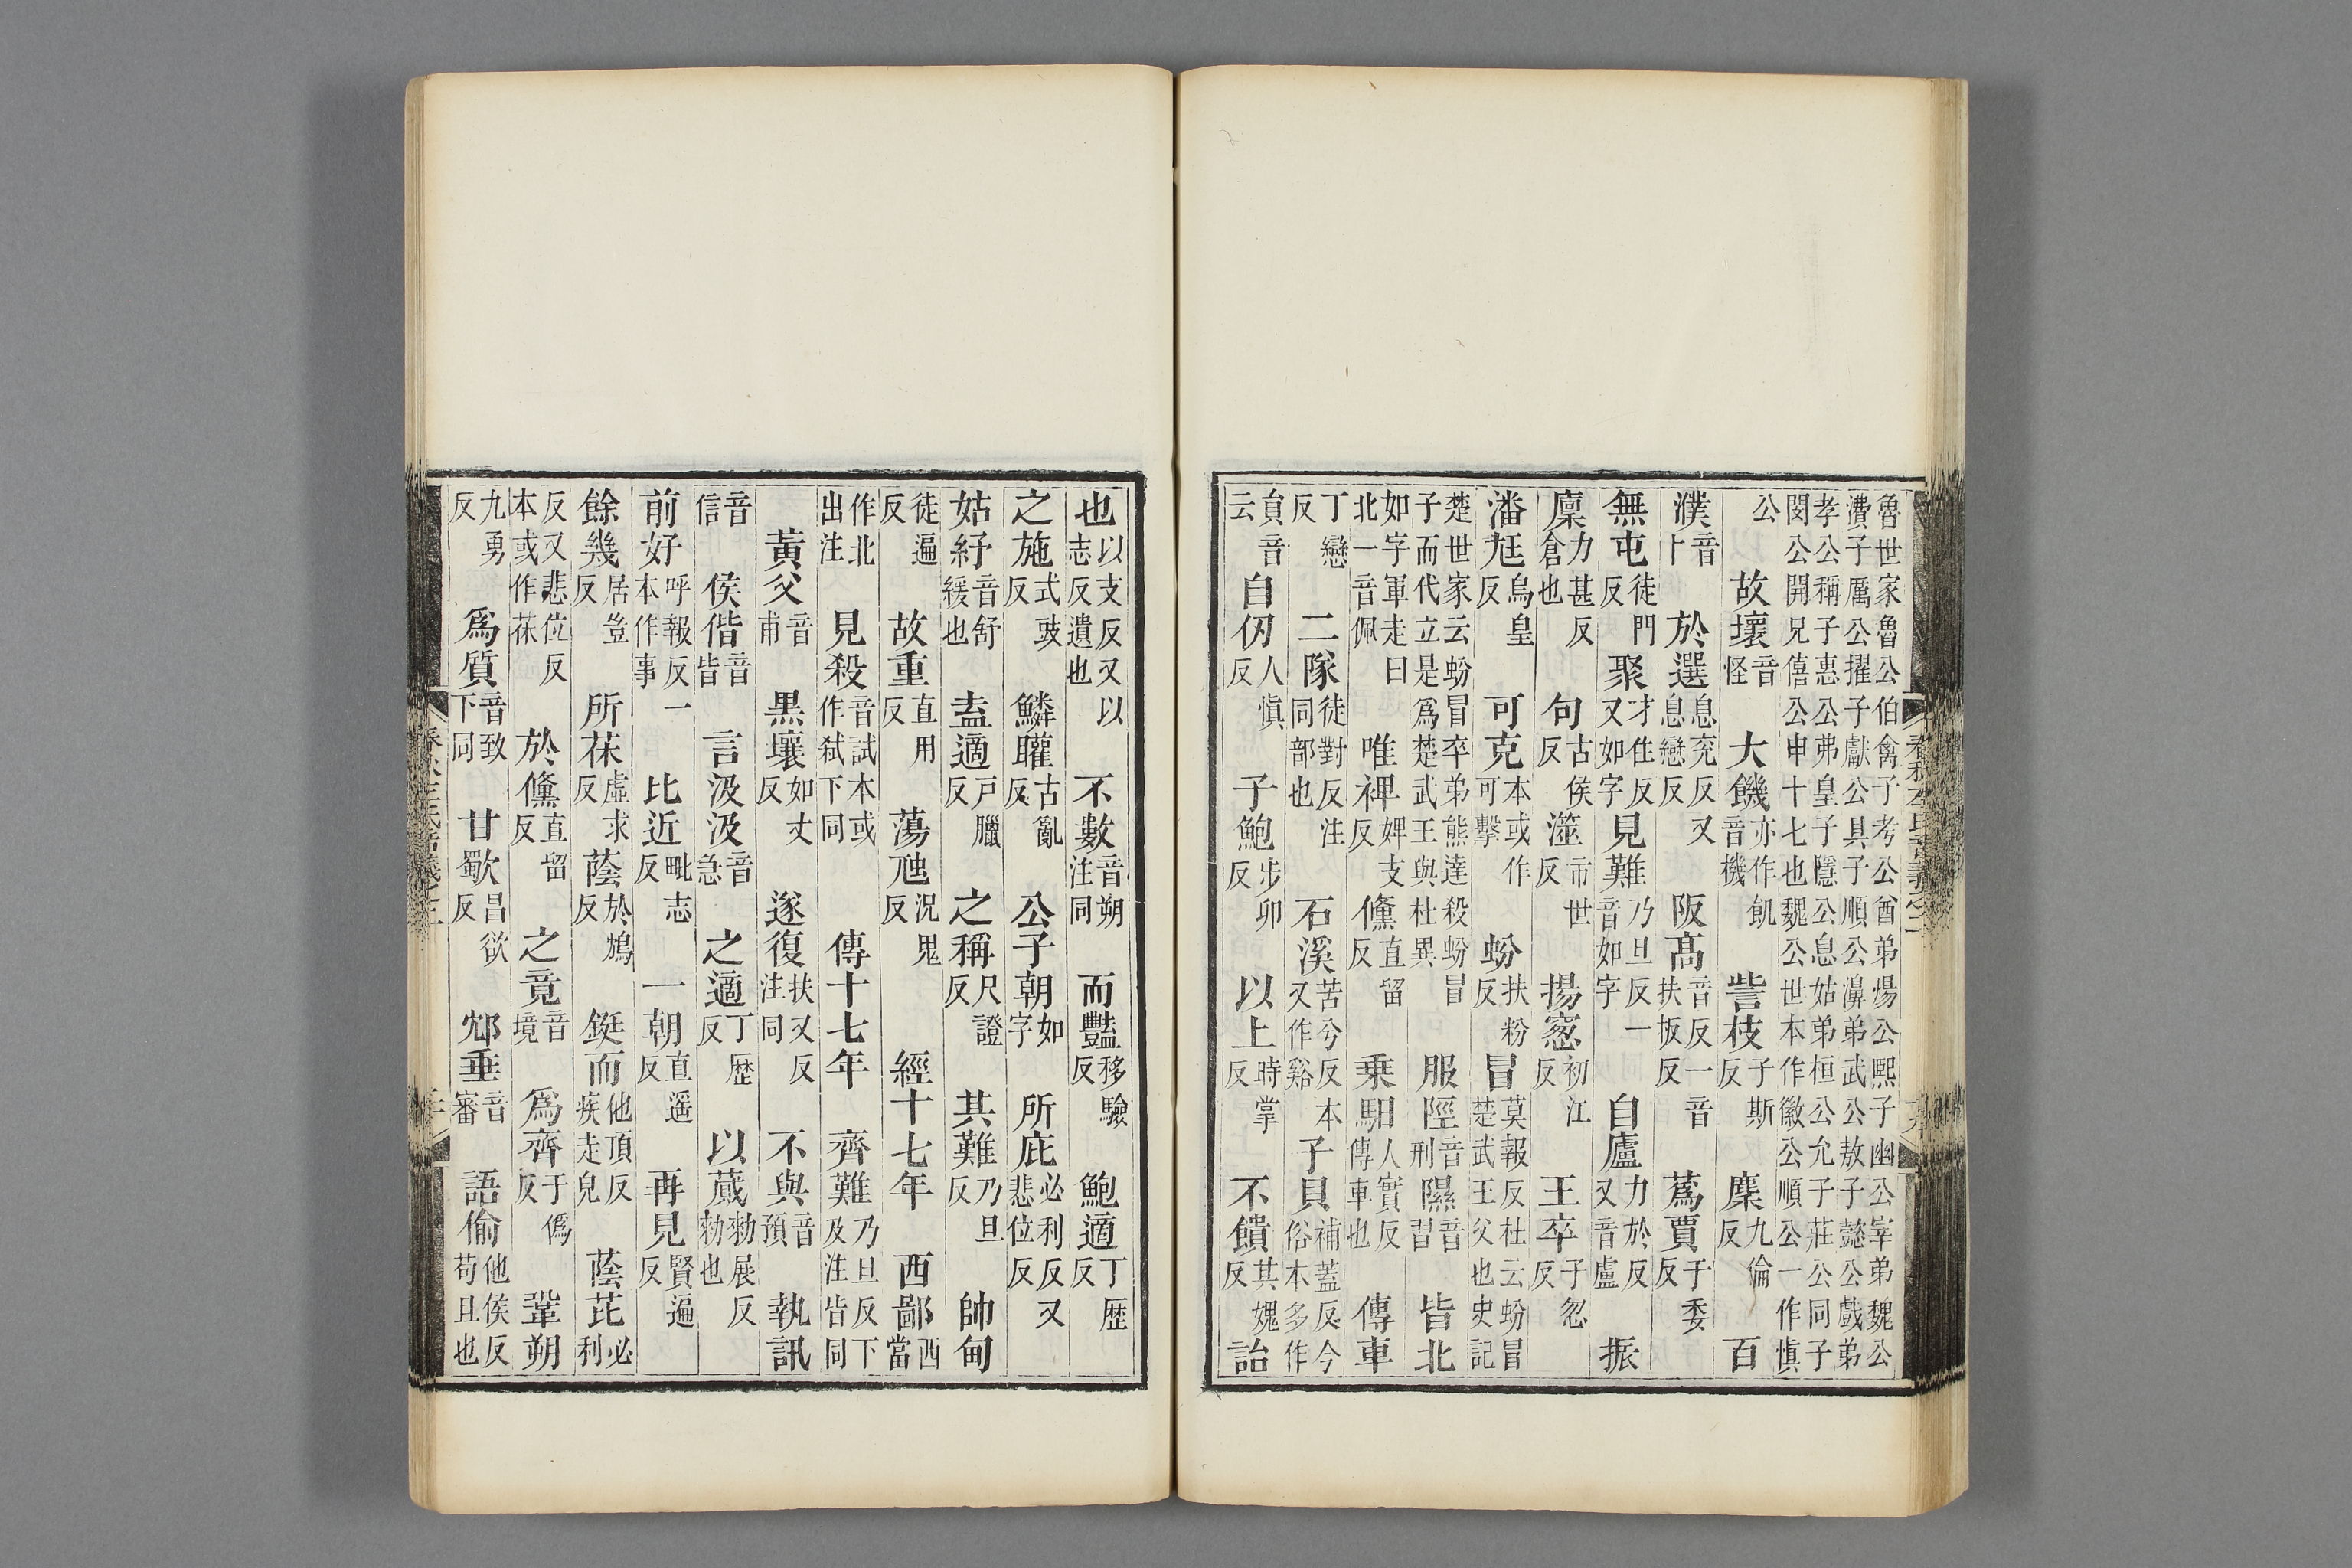 魯世家魯公伯禽子考公酋弟煬公熙子幽公宰弟魏公㵒子厲公擢子獻公具子順公濞弟武公敖子懿公戲弟
孝公稱子惠公弗皇子隱公息姑弟桓公允子莊公同子閔公開兄僖公申十七也魏公世本作徽公順公一作愼
公 故壞音怪 大饑亦作飢音機 訾枝子斯反 麇九倫反 百
濮音卜 於選息兖反又息戀反 阪高音反一音扶板反 蒍賈于委反
無屯徒門反 聚才住反又如字 見難乃旦反一音如字 自廬力於反又音盧 振
廩力甚反倉也 句古侯反 澨市世反 揚窓初江反 王卒子忽反
潘尫烏皇反 可克本或作可擊 蚡扶粉反 冒莫報反杜云蚡冒楚武王父也史記
楚世家云蚡冒卒弟熊達殺蚡冒子而代立是爲楚武王與杜異 服陘音刑 隰音習 皆北
如字軍走曰北一音佩 唯裨婢支反 鯈直留反 乗馹人實反傳車也 傳車
丁戀反 二隊徒對反注同部也 石溪苦兮反本又作谿 子貝補蓋反今俗本多作
貟音云 自仞人愼反 子鮑步卯反 以上時掌反 不饋其媿反 詒
春秋左氏音義之二 十九
也以支反又以志反遺也 不數音朔注同 而豔移驗反 鮑適丁歴反
之施式豉反 鱗矔古亂反 公子朝如字 所庇必利反又悲位反
姑紓音舒緩也 盍適戸臘反 之稱尺證反 其難乃旦反 帥甸
徒遍反 故重直用反 蕩虺況鬼反 經十七年 西鄙西當
作北出注 見殺音試本或作弑下同 傳十七年 齊難乃旦反下及注皆同
黃父音甫 黒壤如丈反 遂復扶又反注同 不與音預 執訊
音信 侯偕音皆 言汲汲音急 之適丁歴反 以蕆勑展反勑也
前好呼報反一本作事 比近毗志反 一朝直遥反 再見賢遍反
餘幾居豈反 所茠虛求反 蔭於鴆反 鋌而他頂反疾走皃 蔭芘必利
反又悲位反本或作茠 於鯈直留反 之竟音境 爲齊于僞反 鞏朔
九勇反 爲質音致下同 甘歜昌欲反 邥垂音審 語偷他侯反苟且也